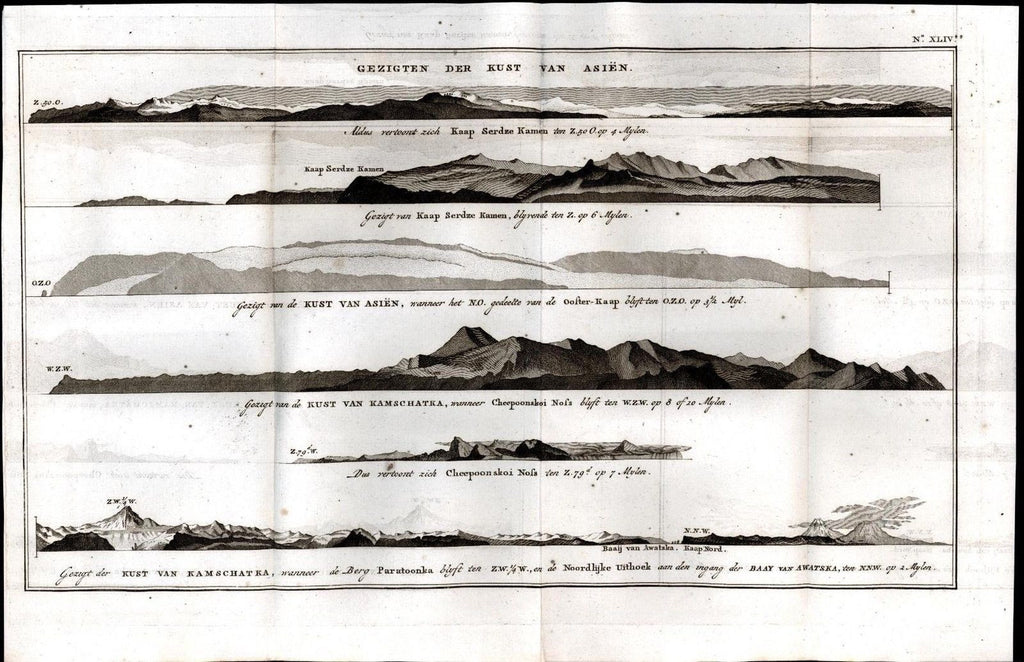 Nº XLIV.
GEZIGTEN DER KUST VAN ASIËN.
Z. 50. O.
Aldus vertoont zich Kaap Serdze Kamen ten Z. 50 O. op 4 Mylen.
Kaap Serdze Kamen
Gezigt van Kaap Serdze Kamen, blyvende ten Z. op 6 Mylen.
O.Z.O
Gezigt van de KUST VAN ASIËN, wanneer het N.O. gedeelte van de Ooster-Kaap blyft ten O.Z.O. op 3½ Myl.
W.Z.W.
Gezigt van de KUST VAN KAMSCHATKA, wanneer Cheepoonskoi Noſs blyft ten W.Z.W. op 8 of 10 Mylen.
Z. 79ᵈ W.
Dus vertoont zich Cheepoonskoi Noſs ten Z. 79ᵈ op 7 Mylen.
Z.W. ¼ W.
N.N.W.
Baaij van Awatska. Kaap Nord.
Gezigt der KUST VAN KAMSCHATKA, wanneer de Berg Paratoonka blyft ten Z.W. ¼ W., en de Noordlijke Uithoek aan den ingang der BAAY VAN AWATSKA, ten N.N.W. op 2 Mylen.